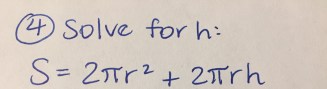 ④ Solve for h:
S = 2πr² + 2πrh